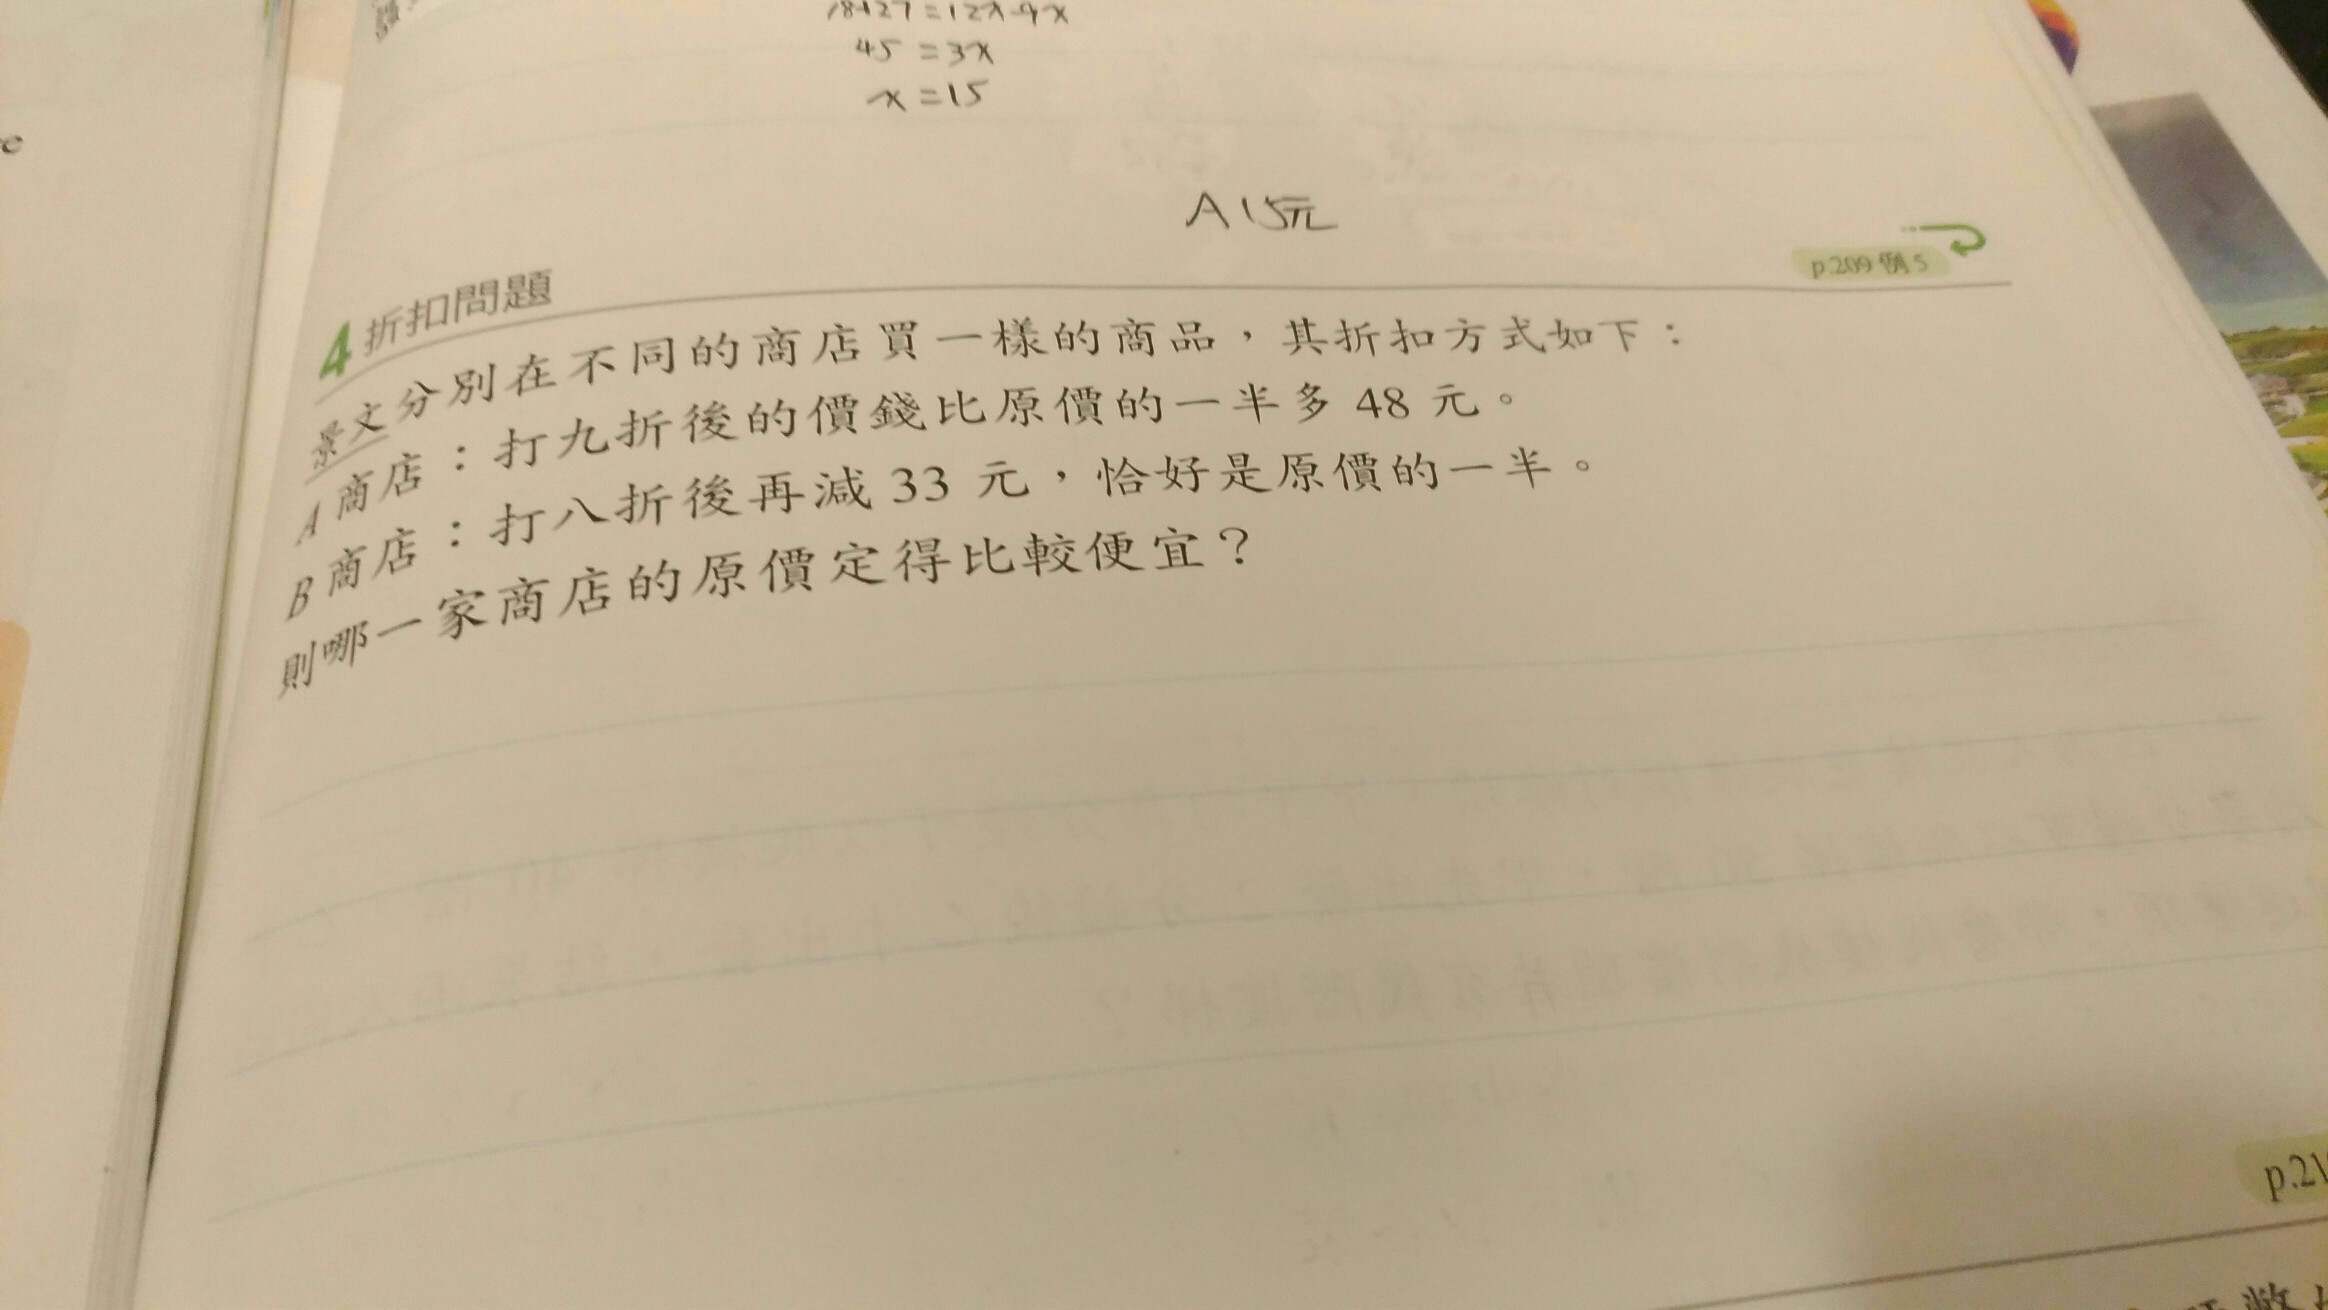 18+27=12x-9x
45=3x
x=15
A 15元
p.209 例5
4 折扣問題
景文分別在不同的商店買一樣的商品，其折扣方式如下：
A商店：打九折後的價錢比原價的一半多 48 元。
B商店：打八折後再減 33 元，恰好是原價的一半。
則哪一家商店的原價定得比較便宜？